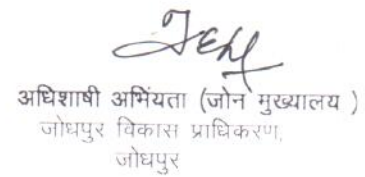 अधिशाषी अभियंता (जोन मुख्यालय )
जोधपुर विकास प्राधिकरण,
जोधपुर